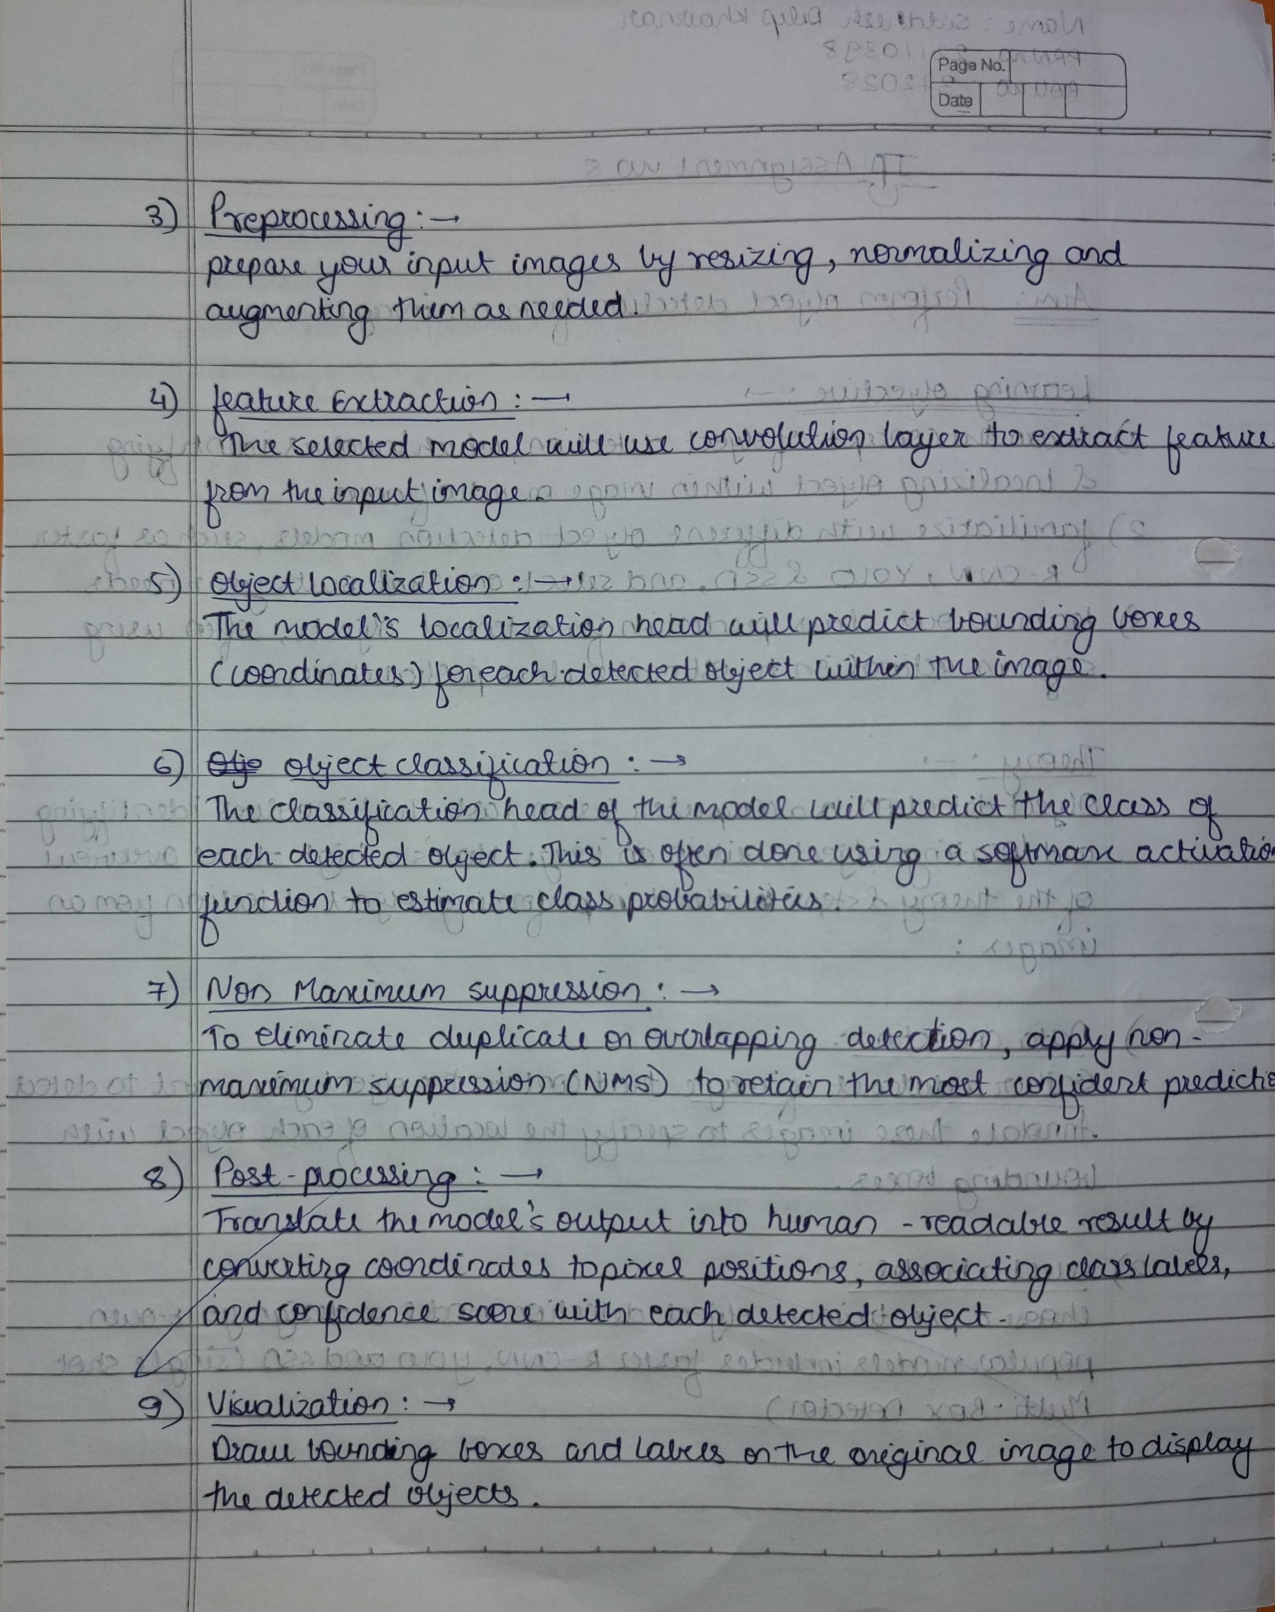 Page No.
Date
3) Preprocessing :→
prepare your input images by resizing, normalizing and
augmenting them as needed.
4) feature Extraction : →
The selected model will use convolution layer to extract feature
from the input image.
5) Object localization : →
The model's localization head will predict bounding boxes
(coordinates) for each detected object within the image.
6) Obje object classification : →
The classification head of the model will predict the class of
each detected object. This is often done using a softmax activation
function to estimate class probabilities.
7) Non Maximum suppression : →
To eliminate duplicate or overlapping detection, apply non-
maximum suppression (NMS) to retain the most confident predictio
8) Post-processing : →
Translate the model's output into human-readable result by
converting coordinates to pixel positions, associating class labels,
and confidence score with each detected object.
9) Visualization : →
Draw bounding boxes and labels on the original image to display
the detected objects.